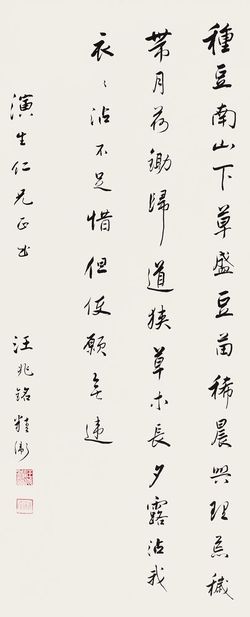 種豆南山下草盛豆苗稀晨興理荒穢
帶月荷鋤歸道狹草木長夕露沾我
衣衣沾不足惜但使願無違
演生仁兄正書
汪兆銘精衛